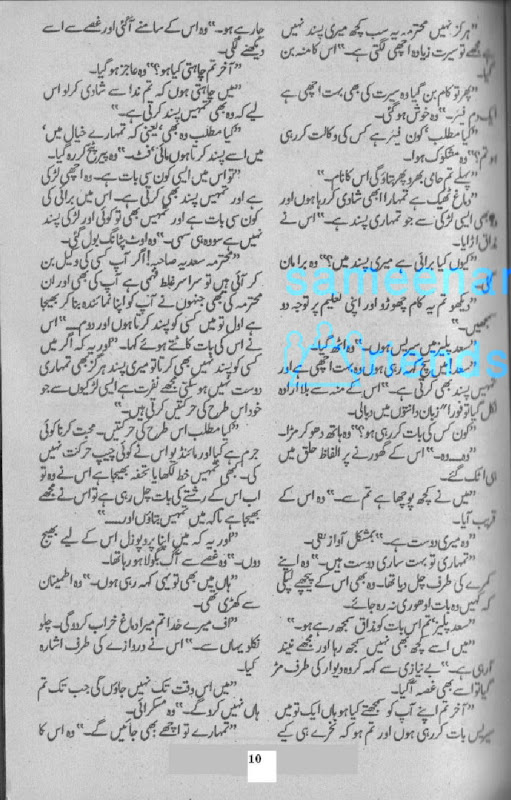 ”ہرگز نہیں محترمہ یہ سب کچھ میری پسند نہیں
مجھے تو سیرت زیادہ اچھی لگتی ہے۔“ اس کا منہ بن
گیا۔
”پھر تو کام بن گیا وہ سیرت کی بھی بہت اچھی ہے
ایک دم فیئر۔“ وہ خوش ہو گئی۔
”کیا مطلب، کون فیئر ہے کس کی وکالت کر رہی
ہو تم؟“ وہ مشکوک ہوا۔
”پہلے تم حامی بھرو پھر بتاؤں گی اس کا نام۔“
”دماغ ٹھیک ہے تمہارا ابھی شادی کر رہا ہوں اور
وہ بھی ایسی لڑکی سے جو تمہاری پسند ہے۔“ اس نے
مذاق اڑایا۔
”کیوں کیا برائی ہے میری پسند میں؟“ وہ برا مان
گئی۔
”دیکھو تم یہ کام چھوڑو اور اپنی تعلیم پر توجہ دو
سمجھیں۔“
”سعد پلیز میں سیریس ہوں۔“
”سعد! میں سچ کہہ رہی ہوں وہ بہت اچھی ہے اور
تمہیں پسند بھی کرتی ہے۔“ اس کے منہ سے بلا ارادہ
نکل گیا تو فوراً زبان دانتوں میں دبالی۔
”کون کس کی بات کر رہی ہو؟“ وہ ہاتھ دھو کر مڑا۔
”وہ۔۔۔ وہ۔“ اس کے گھورنے پر الفاظ حلق میں
ہی اٹک گئے۔
”میں نے کچھ پوچھا ہے تم سے۔“ وہ اس کے
قریب آیا۔
”وہ میری دوست ہے۔“ بمشکل آواز نکلی۔
”تمہاری تو بہت ساری دوست ہیں۔“ وہ اپنے
کمرے کی طرف چل دیا تھا۔ وہ بھی اس کے پیچھے لپکی
کہ کہیں وہ بات ادھوری نہ رہ جائے۔
”سعد پلیز، تم اس بات کو مذاق سمجھ رہے ہو۔“
”میں اسے کچھ بھی نہیں سمجھ رہا اور مجھے نیند
آ رہی ہے۔“ بے نیازی سے کہہ کر وہ دیوار کی طرف مڑ
گیا تو اسے بھی غصہ آ گیا۔
”آخر تم اپنے آپ کو سمجھتے کیا ہو ہاں ایک تو میں
سیریس بات کر رہی ہوں اور تم ہو کہ نخرے ہی کیے
جا رہے ہو۔“ وہ اس کے سامنے آ گئی اور غصے سے اسے
دیکھنے لگی۔
”آخر تم چاہتی کیا ہو؟“ وہ عاجز ہو گیا۔
”میں چاہتی ہوں کہ تم ندا سے شادی کر لو اس
لیے کہ وہ بھی تمہیں پسند کرتی ہے۔“
”کیا مطلب وہ بھی، یعنی کہ تمہارے خیال میں، میں
اسے پسند کرتا ہوں مائی فٹ۔“ وہ پیر پٹخ کر رہ گیا۔
”تو اس میں ایسی کون سی بات ہے۔ وہ اچھی لڑکی
ہے اور تمہیں پسند بھی کرتی ہے۔ اس میں برائی کی
کون سی بات ہے اور تمہیں بھی تو کوئی اور لڑکی پسند
نہیں ہے سو وہ ہی سہی۔“ وہ اوٹ پٹانگ بول گئی۔
”محترمہ سعدیہ صاحبہ! اگر آپ کسی کی وکیل بن
کر آئی ہیں تو سراسر غلط فہمی ہے آپ کی بھی اور ان
محترمہ کی بھی جنہوں نے آپ کو اپنا نمائندہ بنا کر بھیجا
ہے اول تو میں کسی کو پسند کرتا ہوں اور دوم۔۔۔“ اس
نے اس کی بات کاٹتے ہوئے کہا۔ ”اور یہ کہ اگر میں
کسی کو پسند نہیں بھی کرتا تو میری پسند ہرگز بھی تمہاری
دوست نہیں ہو سکتی مجھے نفرت ہے ایسی لڑکیوں سے جو
خود اس طرح کی حرکتیں کرتی ہیں۔“
”کیا مطلب اس طرح کی حرکتیں۔ محبت کرنا کوئی
جرم ہے کیا اور مائنڈ یو اس نے کوئی چیپ حرکت نہیں
کی۔ کبھی تمہیں خط لکھا یا تحفہ بھیجا ہے اس نے وہ تو
اب اس کے رشتے کی بات چل رہی ہے تو اس نے مجھے
بھیجا ہے تاکہ میں تمہیں بتاؤں اور۔۔۔“
”اور یہ کہ میں اپنا پروپوزل اس کے لیے بھیج
دوں۔“ وہ غصے سے آگ بگولا ہو رہا تھا۔
”ہاں میں بھی تو یہی کہہ رہی ہوں۔“ وہ اطمینان
سے کھڑی تھی۔
”اف میرے خدا تم میرا دماغ خراب کر دو گی۔ چلو
نکلو یہاں سے۔“ اس نے دروازے کی طرف اشارہ
کیا۔
”میں اس وقت تک نہیں جاؤں گی جب تک تم
ہاں نہیں کرو گے۔“ وہ مسکرائی۔
”تمہارے تو اچھے بھی جائیں گے۔“ وہ اس کا
10